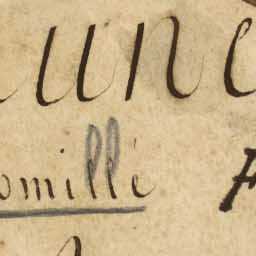 une
omillé F